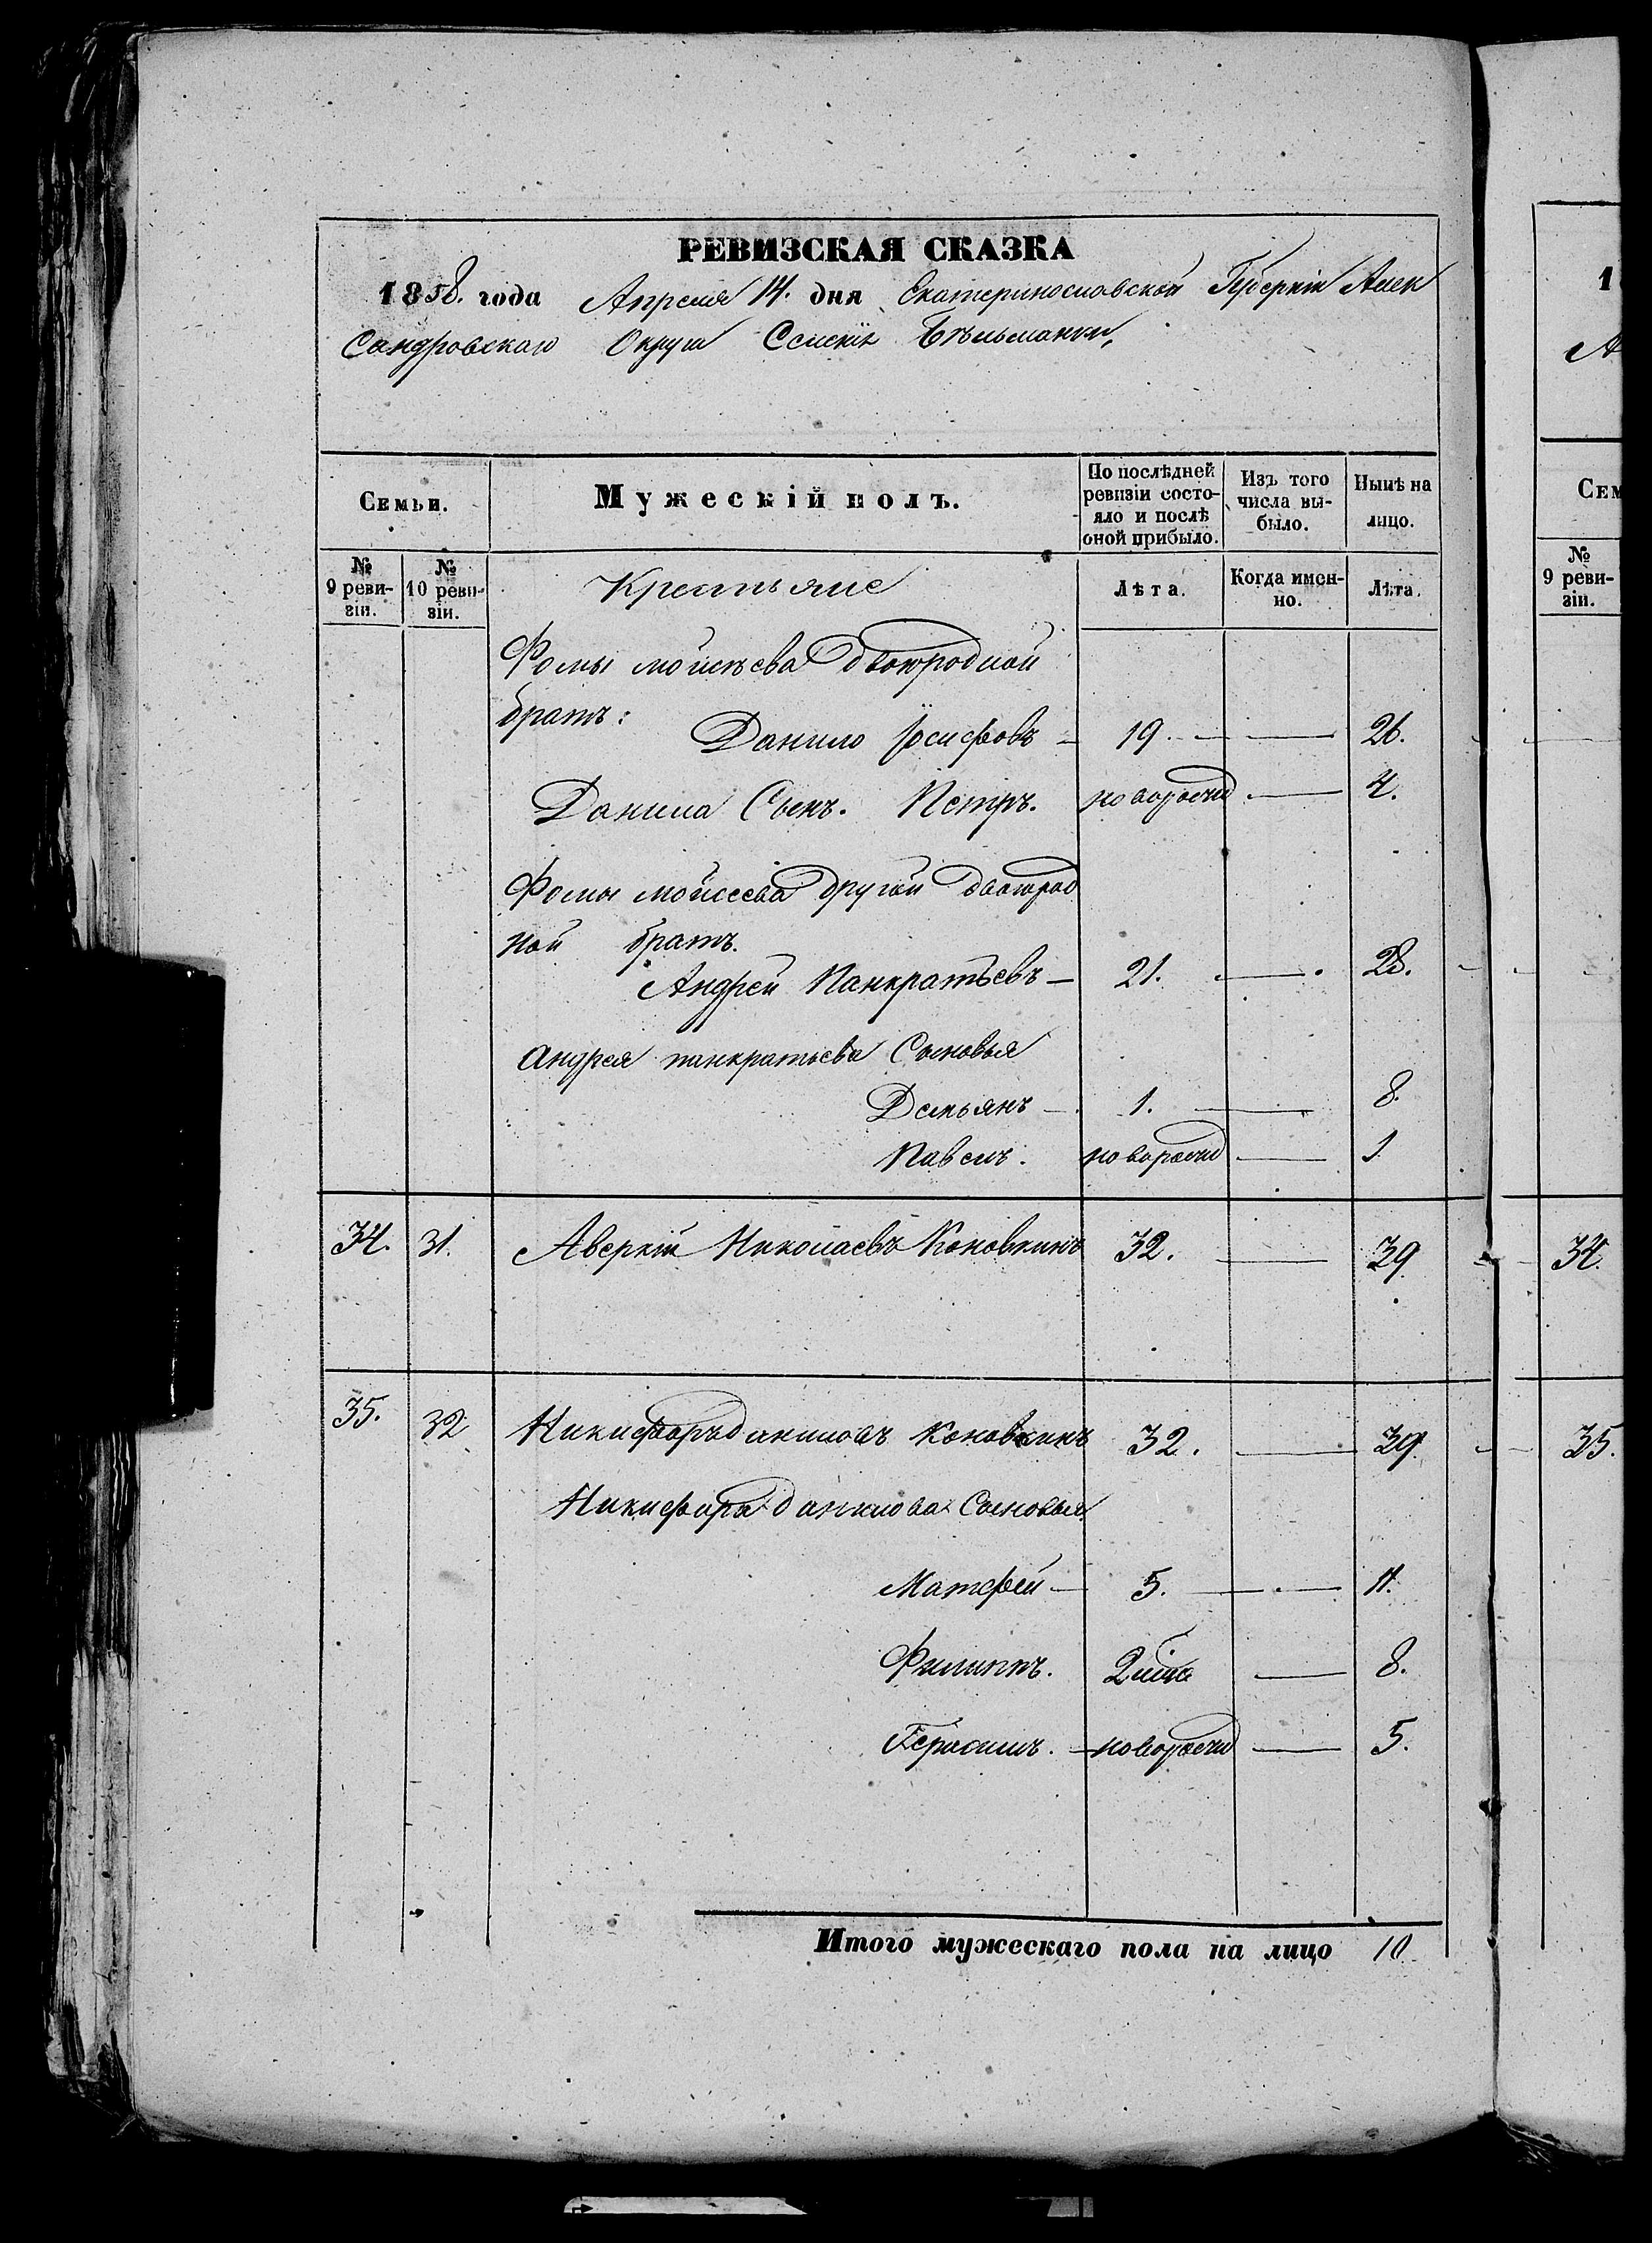 РЕВИЗСКАЯ СКАЗКА
1858. года Апреля 14. дня Екатеринославской Губерніи Алек
сандровскаго Округа Селенія Бѣльманки,
Семьи. Мужескій полъ. По послѣдней ревизіи состояло и послѣ оной прибыло. Изъ того числа выбыло. Нынѣ на лицо.
№ 9 ревизіи. № 10 ревизіи. Крестьяне Лѣта. Когда именно. Лѣта.
Фомы моисѣева двоюродной
братъ:
Данило Іосифовъ — 19. — 26.
Данила Сынъ. Петръ. новорожд — 4.
Фомы моисеева другой двоюрод
ной братъ.
Андрей Панкратьевъ — 21. — 28.
Андрея панкратьева Сыновья
Демьянъ — 1. — 8.
Павелъ. новорожд — 1
34. 31. Аверкій Николаевъ Коновкинъ 32. — 39
35. 32 Никифоръ даниловъ Коновкинъ 32. — 39.
Никифора данилова Сыновья
Матфей — 5. — 11.
Филиппъ. — 8.
Герасимъ. — новорожд — 5.
Итого мужескаго пола на лицо 10.
1
А
Сем
№
9 реви-
зіи.
34.
35.